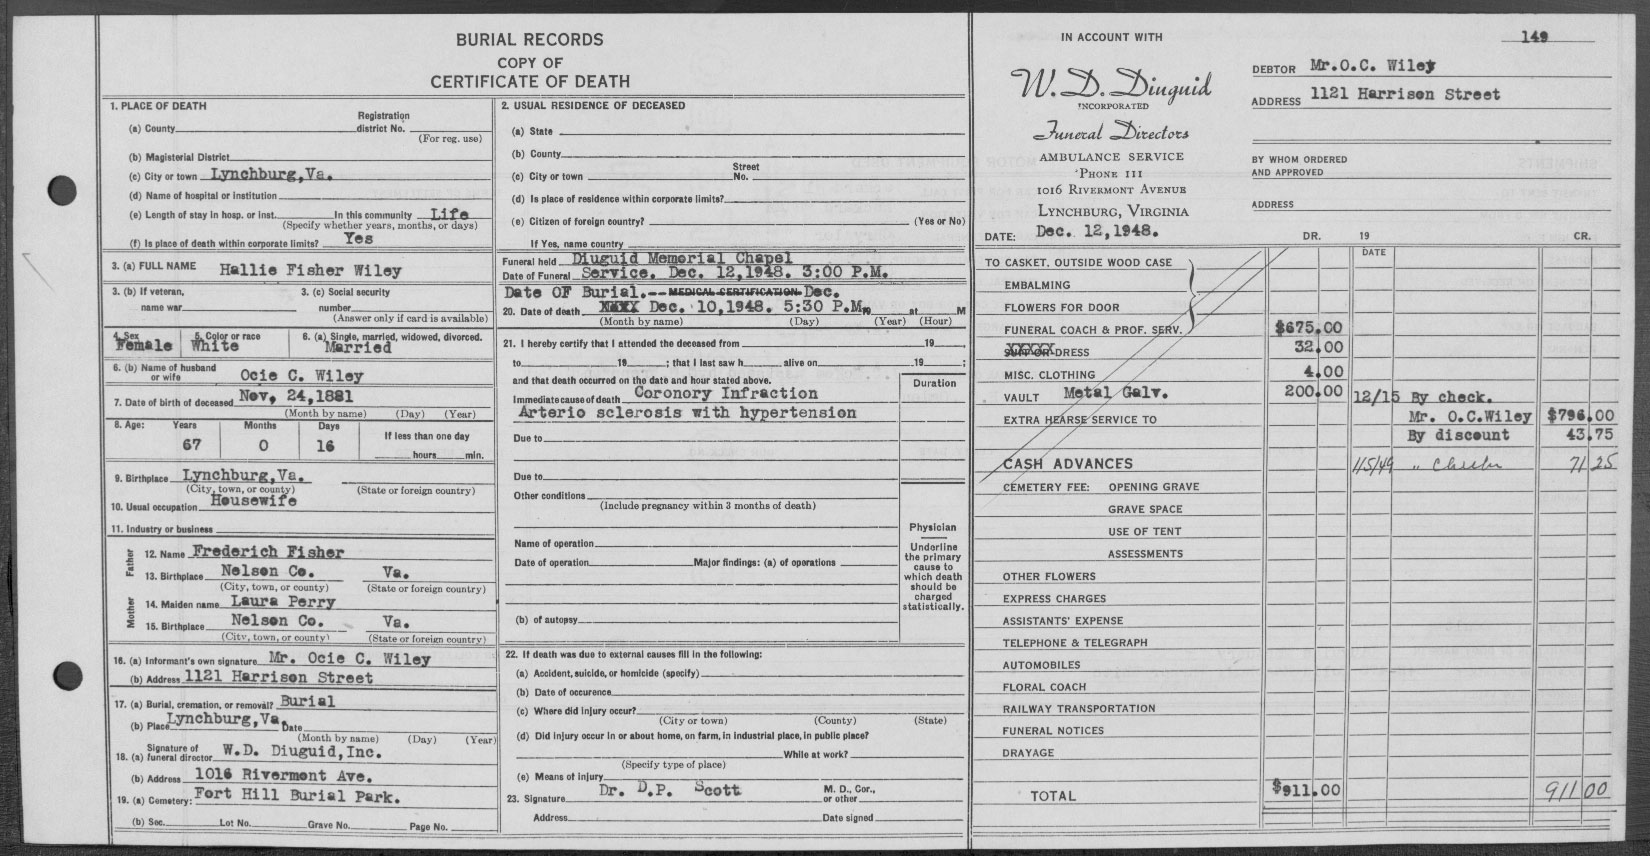 BURIAL RECORDS
COPY OF
CERTIFICATE OF DEATH
1. PLACE OF DEATH
(a) County Registration district No.
(For reg. use)
(b) Magisterial District
(c) City or town Lynchburg,Va.
(d) Name of hospital or institution
(e) Length of stay in hosp. or inst. In this community Life
(Specify whether years, months, or days)
(f) Is place of death within corporate limits? Yes
3. (a) FULL NAME Hallie Fisher Wiley
3. (b) If veteran, name war 3. (c) Social security number
(Answer only if card is available)
4. Sex Female 5. Color or race White 6. (a) Single, married, widowed, divorced. Married
6. (b) Name of husband or wife Ocie C. Wiley
7. Date of birth of deceased Nov, 24,1881
(Month by name) (Day) (Year)
8. Age: Years Months Days If less than one day
67 0 16 hours min.
9. Birthplace Lynchburg,Va.
(City, town, or county) (State or foreign country)
10. Usual occupation Housewife
11. Industry or business
Father
12. Name Frederich Fisher
13. Birthplace Nelson Co. Va.
(City, town, or county) (State or foreign country)
Mother
14. Maiden name Laura Perry
15. Birthplace Nelson Co. Va.
(City, town, or county) (State or foreign country)
16. (a) Informant's own signature Mr. Ocie C. Wiley
(b) Address 1121 Harrison Street
17. (a) Burial, cremation, or removal? Burial
(b) Place Lynchburg,Va. Date
(Month by name) (Day) (Year)
18. (a) Signature of funeral director W.D. Diuguid,Inc.
(b) Address 1016 Rivermont Ave.
19. (a) Cemetery: Fort Hill Burial Park.
(b) Sec. Lot No. Grave No. Page No.
2. USUAL RESIDENCE OF DECEASED
(a) State
(b) County
(c) City or town Street No.
(d) Is place of residence within corporate limits?
(e) Citizen of foreign country? (Yes or No)
If Yes, name country
Funeral held Diuguid Memorial Chapel
Date of Funeral Service. Dec. 12,1948. 3:00 P.M.
Date OF Burial.-- MEDICAL CERTIFICATION Dec.
20. Date of death XXXX Dec. 10,1948. 5:30 P.M. at M
(Month by name) (Day) (Year) (Hour)
21. I hereby certify that I attended the deceased from 19
to 19 ; that I last saw h alive on 19 ;
and that death occurred on the date and hour stated above. Duration
Immediate cause of death Coronory Infraction
Arterio sclerosis with hypertension
Due to
Due to
Other conditions
(Include pregnancy within 3 months of death)
Physician
Underline the primary cause to which death should be charged statistically.
Name of operation
Date of operation Major findings: (a) of operations
(b) of autopsy
22. If death was due to external causes fill in the following:
(a) Accident, suicide, or homicide (specify)
(b) Date of occurence
(c) Where did injury occur?
(City or town) (County) (State)
(d) Did injury occur in or about home, on farm, in industrial place, in public place?
While at work?
(Specify type of place)
(e) Means of injury
23. Signature Dr. D.P. Scott M. D., Cor., or other
Address Date signed
149
IN ACCOUNT WITH
W. D. Diuguid
INCORPORATED
Funeral Directors
AMBULANCE SERVICE
'PHONE 111
1016 RIVERMONT AVENUE
LYNCHBURG, VIRGINIA
DATE: Dec. 12,1948.
DEBTOR Mr.O.C. Wiley
ADDRESS 1121 Harrison Street
BY WHOM ORDERED AND APPROVED
ADDRESS
DR. 19 CR.
DATE
TO CASKET, OUTSIDE WOOD CASE
EMBALMING
FLOWERS FOR DOOR
FUNERAL COACH & PROF. SERV. $675.00
XXXXX SUIT OR DRESS 32.00
MISC. CLOTHING 4.00
VAULT Metal Galv. 200.00 12/15 By check.
EXTRA HEARSE SERVICE TO Mr. O.C.Wiley $796.00
By discount 43.75
CASH ADVANCES 1/5/49 " Check 71 25
CEMETERY FEE: OPENING GRAVE
GRAVE SPACE
USE OF TENT
ASSESSMENTS
OTHER FLOWERS
EXPRESS CHARGES
ASSISTANTS' EXPENSE
TELEPHONE & TELEGRAPH
AUTOMOBILES
FLORAL COACH
RAILWAY TRANSPORTATION
FUNERAL NOTICES
DRAYAGE
TOTAL $911.00 911 00